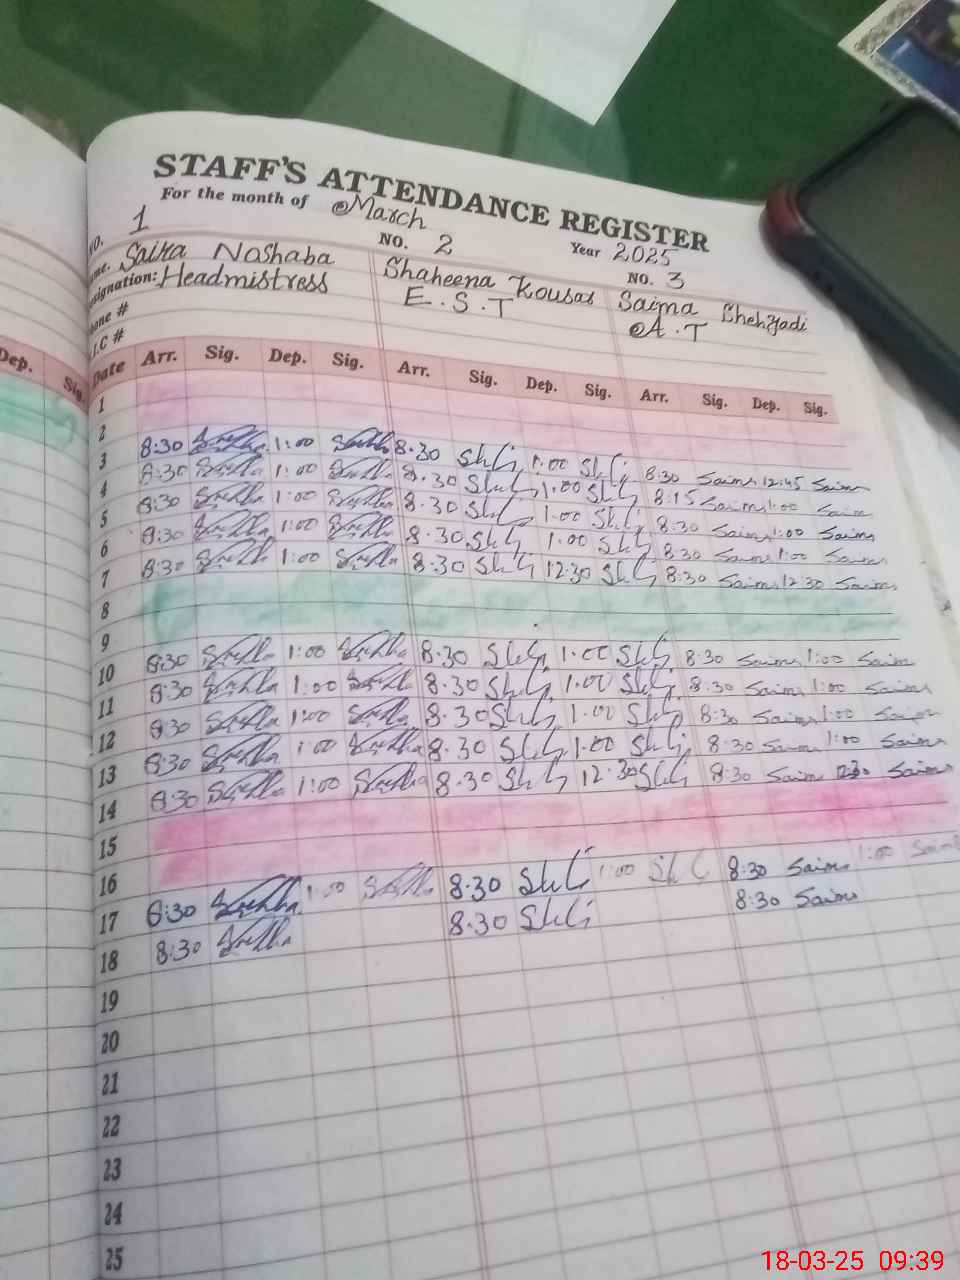 STAFF'S ATTENDANCE REGISTER
For the month of March Year 2025
NO. 1 NO. 2 NO. 3
Saira Noshaba Shaheena Kousar Saima Shehzadi
Designation: Headmistress E.S.T A.T
Dep. Sig. Date Arr. Sig. Dep. Sig. Arr. Sig. Dep. Sig. Arr. Sig. Dep. Sig.
1
2
3 8:30 1:00 8.30 1.00 8:30 Saima 12:45 Saima
4 8:30 1:00 8.30 1.00 8:15 Saima 1:00 Saima
5 8:30 1:00 8.30 1.00 8:30 Saima 1:00 Saima
6 8:30 1:00 8.30 1.00 8:30 Saima 1:00 Saima
7 8:30 1:00 8.30 12.30 8:30 Saima 12:30 Saima
8
9
10 8:30 1:00 8.30 1.00 8:30 Saima 1:00 Saima
11 8:30 1:00 8.30 1.00 8:30 Saima 1:00 Saima
12 8:30 1:00 8.30 1.00 8:30 Saima 1:00 Saima
13 8:30 1:00 8.30 1.00 8:30 Saima 1:00 Saima
14 8:30 1:00 8.30 12.30 8:30 Saima 12:30 Saima
15
16
17 8:30 1:00 8.30 1:00 8:30 Saima 1:00 Saima
18 8:30 8.30 8:30 Saima
19
20
21
22
23
24
25
18-03-25 09:39